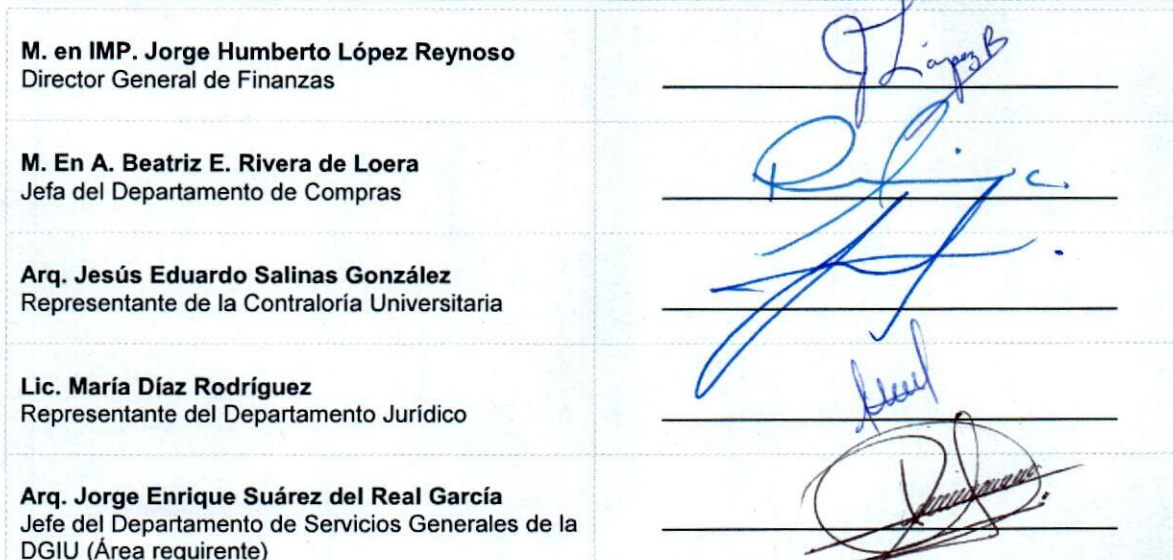 M. en IMP. Jorge Humberto López Reynoso
Director General de Finanzas
J López R
M. En A. Beatriz E. Rivera de Loera
Jefa del Departamento de Compras
Arq. Jesús Eduardo Salinas González
Representante de la Contraloría Universitaria
Lic. María Díaz Rodríguez
Representante del Departamento Jurídico
Arq. Jorge Enrique Suárez del Real García
Jefe del Departamento de Servicios Generales de la
DGIU (Área requirente)